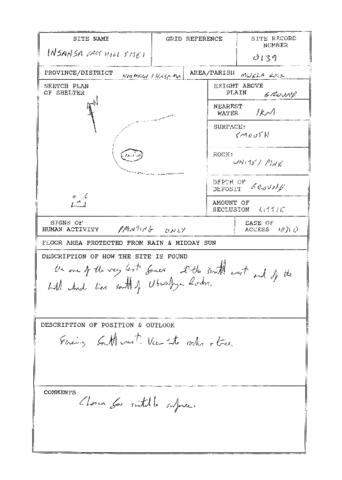 SITE NAME
GRID REFERENCE
SITE RECORD NUMBER
INSANSA
0139
PROVINCE/DISTRICT
AREA/PARISH
SKETCH PLAN OF SHELTER
HEIGHT ABOVE PLAIN GROUND
NEAREST WATER 1KM
SURFACE:
SMOOTH
ROCK:
WHITE/PINK
DEPTH OF DEPOSIT GROUND
AMOUNT OF SECLUSION LITTLE
SIGNS OF HUMAN ACTIVITY PAINTING ONLY
EASE OF ACCESS
FLOOR AREA PROTECTED FROM RAIN & MIDDAY SUN
DESCRIPTION OF HOW THE SITE IS FOUND
On one of the very last of the south west end of the
hill which lies south of
DESCRIPTION OF POSITION & OUTLOOK
Facing South west. View into rocks & trees.
COMMENTS
Chosen for suitable surface.